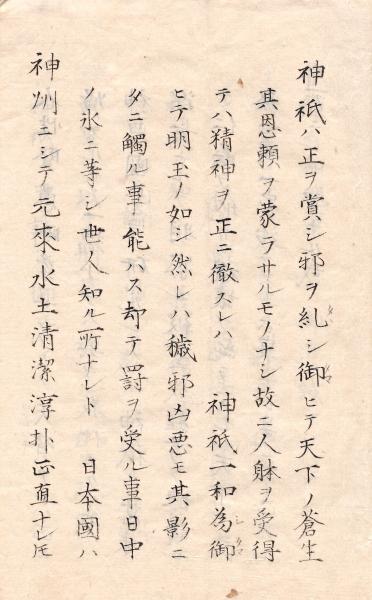 神祇ハ正ヲ賞シ邪ヲ糺シ御ヒテ天下ノ蒼生
其恩頼ヲ蒙ラサルモノナシ故ニ人躰ヲ受得
テハ精神ヲ正ニ徹スレハ 神祇一和為御
ヒテ明玉ノ如シ然レハ穢邪凶悪モ其影ニ
タニ觸ル事能ハス却テ罸ヲ受ル事日中
ノ氷ニ等シ世人知ル所ナレト 日本國ハ
神州ニシテ元來水土清潔淳朴正直ナレ𪜈